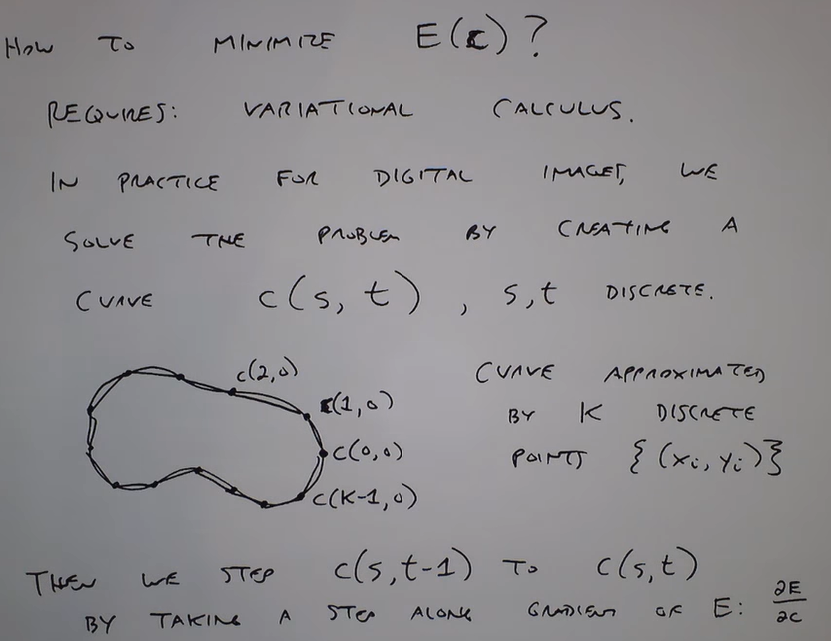 HOW TO MINIMIZE E(C)?
REQUIRES: VARIATIONAL CALCULUS.
IN PRACTICE FOR DIGITAL IMAGES, WE
SOLVE THE PROBLEM BY CREATING A
CURVE C(s, t), s,t DISCRETE.
C(2,0)
C(1,0)
C(0,0)
C(K-1,0)
CURVE APPROXIMATED
BY K DISCRETE
POINTS {(xi, yi)}
THEN WE STEP C(s,t-1) TO C(s,t)
BY TAKING A STEP ALONG GRADIENT OF E: ∂E/∂C